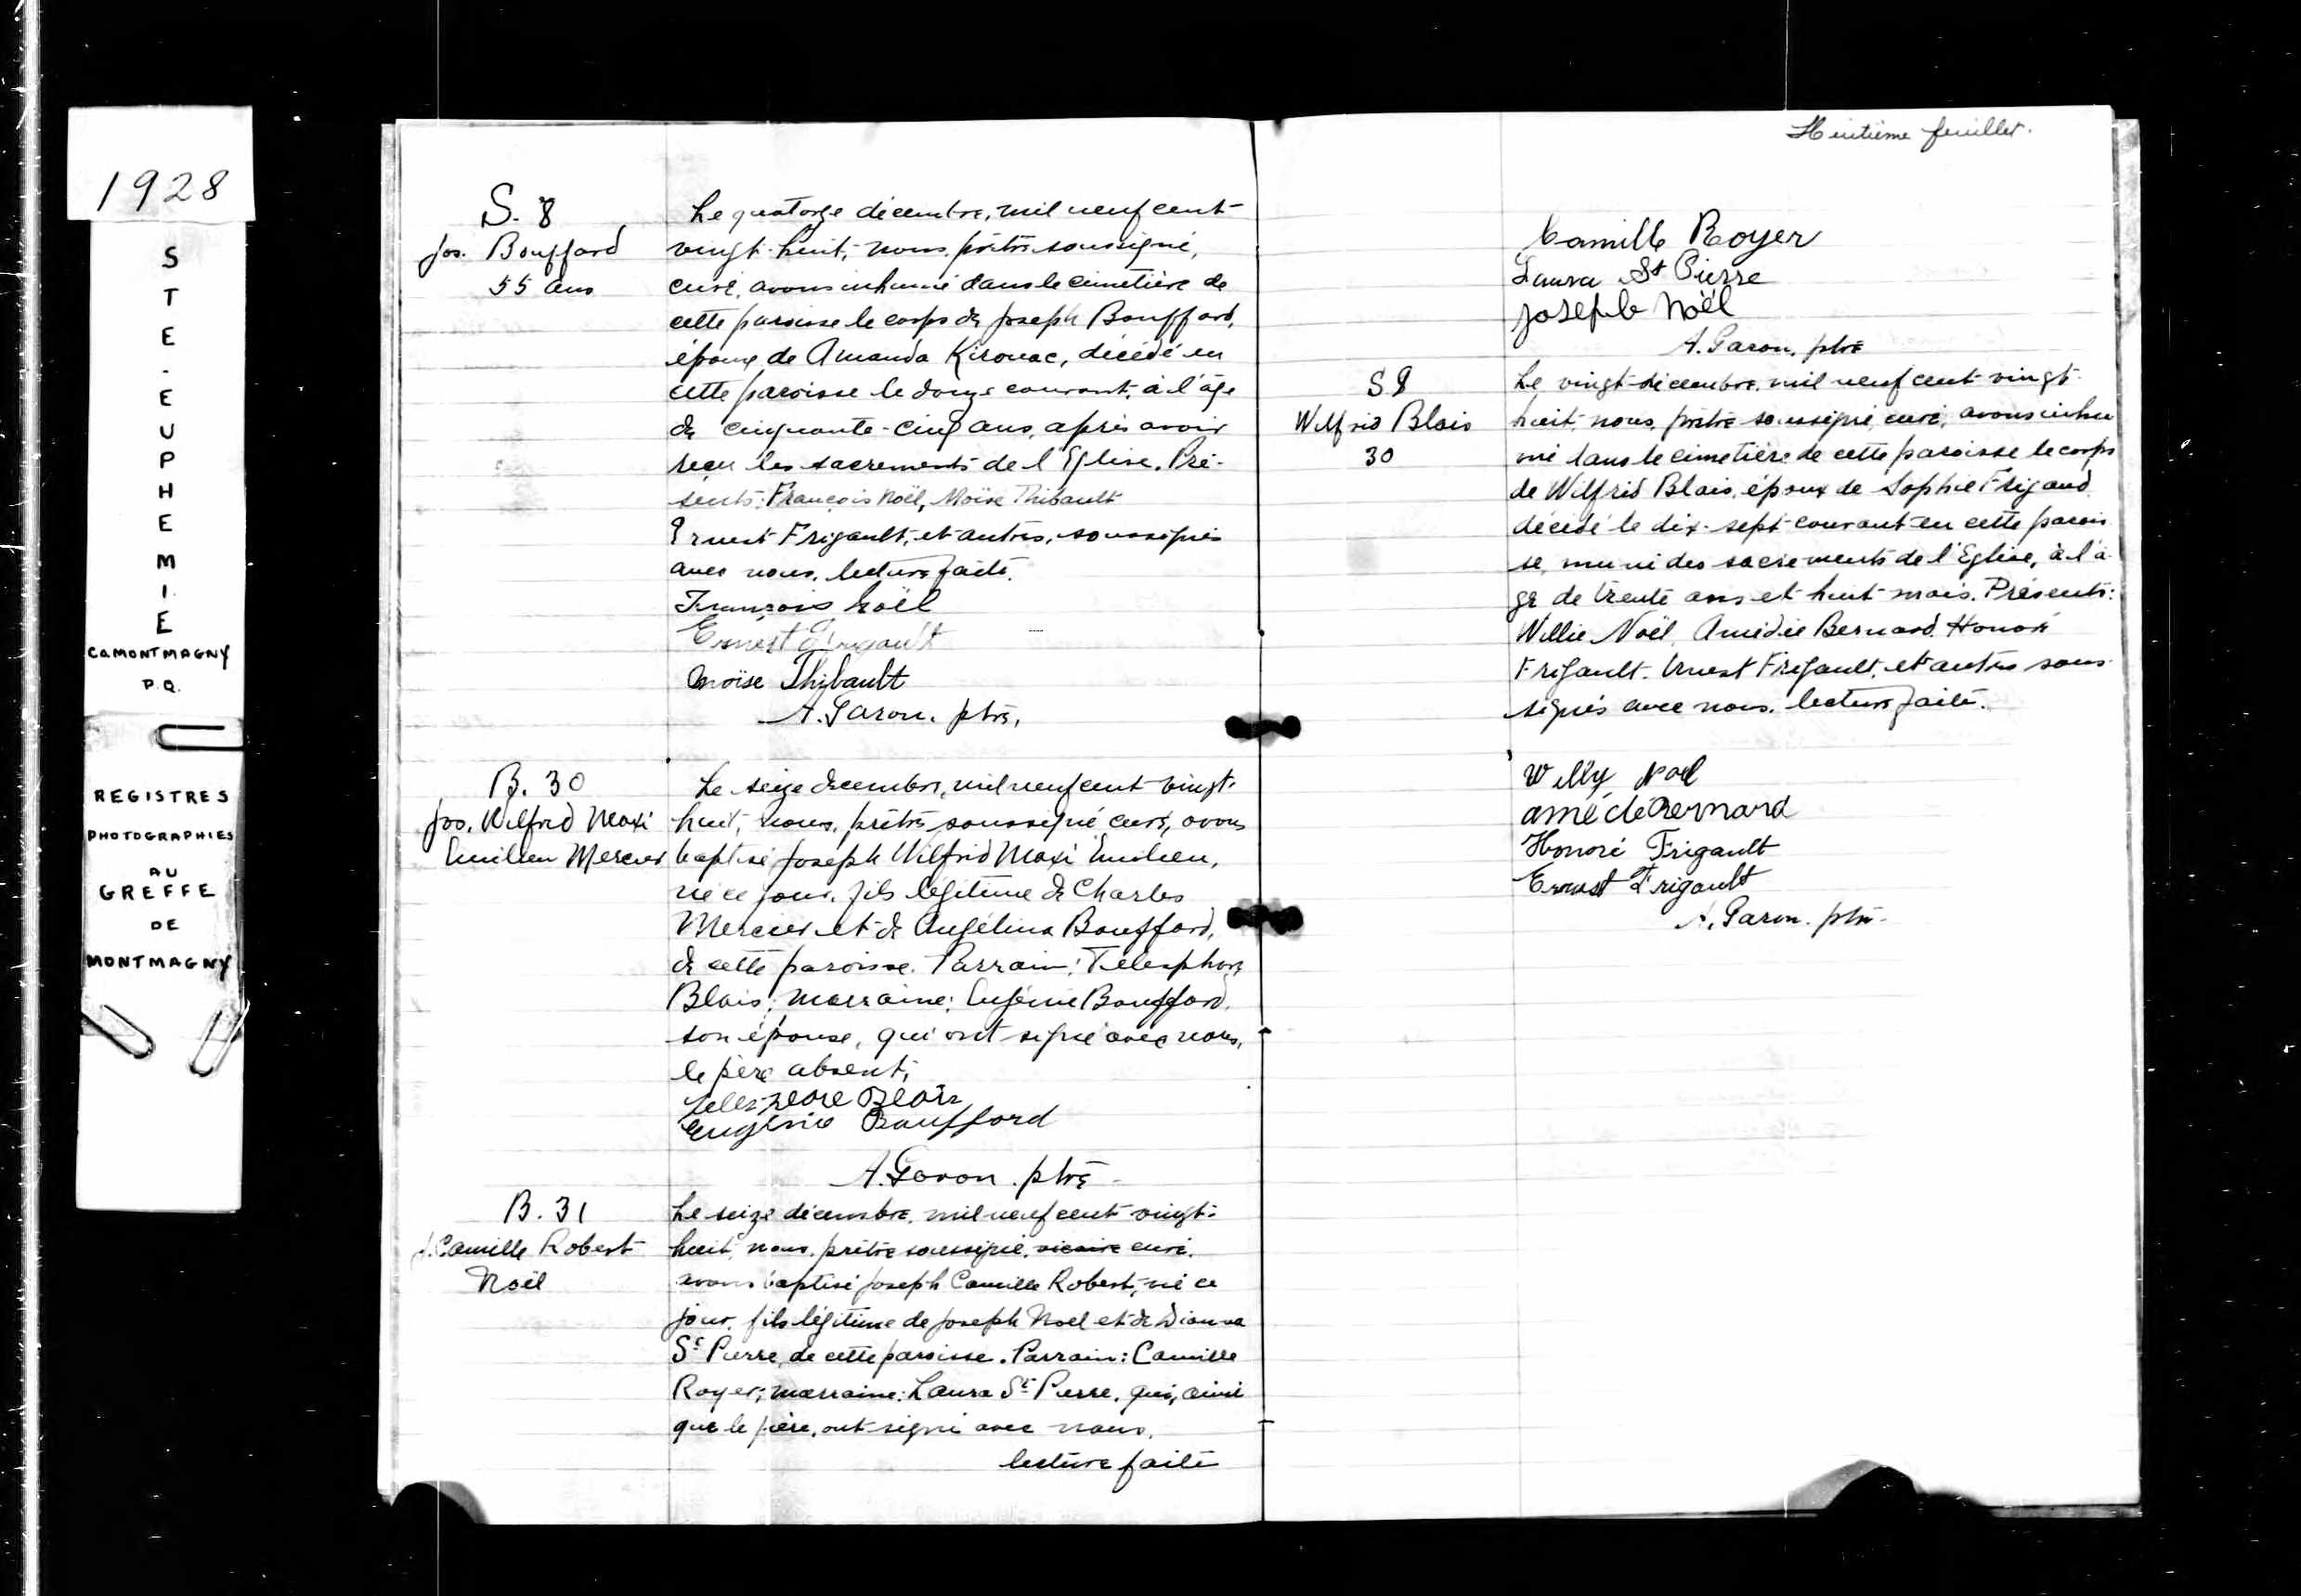 1928
STE-EUPHEMIE
Co MONTMAGNY
P.Q.
REGISTRES
PHOTOGRAPHIES
AU
GREFFE
DE
MONTMAGNY
S. 8
Jos. Bouffard
55 ans
Le quatorze décembre, mil neuf cent
vingt-huit, nous, prêtre soussigné,
curé, avons inhumé dans le cimetière de
cette paroisse le corps de Joseph Bouffard,
époux de Amanda Kirouac, décédé en
cette paroisse le douze courant, à l'âge
de cinquante-cinq ans, après avoir
reçu les sacrements de l'Eglise. Pré-
sents: François Noël, Moïse Thibault
Ernest Frigault, et autres, soussignés
avec nous, lecture faite.
François Noël
Ernest Frigault
Moïse Thibault
A. Garon, ptre.
B. 30
Jos. Wilfrid Maxi
Emilien Mercier
Le seize décembre, mil neuf cent vingt-
huit, nous, prêtre soussigné, curé, avons
baptisé Joseph Wilfrid Maxi Emilien,
né ce jour, fils légitime de Charles
Mercier et de Angélina Bouffard,
de cette paroisse. Parrain: Télesphore
Blais; marraine: Eugénie Bouffard,
son épouse, qui ont signé avec nous,
le père absent,
Blais
Eugénie Bouffard
A. Garon. ptre
B. 31
J. Camille Robert
Noël
Le seize décembre, mil neuf cent vingt-
huit, nous, prêtre soussigné, vicaire curé,
avons baptisé Joseph Camille Robert, né ce
jour, fils légitime de Joseph Noel et de Dianna
St Pierre, de cette paroisse. Parrain: Camille
Royer; marraine: Laura St Pierre, qui, ainsi
que le père, ont signé avec nous.
lecture faite
Huitième feuillet.
Camille Royer
Laura St Pierre
Joseph Noël
A. Garon, ptre
S 9
Wilfrid Blais
30
Le vingt décembre, mil neuf cent vingt-
huit, nous, prêtre soussigné, curé, avons inhu
mé dans le cimetière de cette paroisse le corps
de Wilfrid Blais, époux de Sophie Frigaud,
décédé le dix-sept courant en cette parois
se, muni des sacrements de l'Eglise, à l'â-
ge de trente ans et huit mois. Présents:
Willie Noël, Amédée Bernard, Honoré
Frigault, Ernest Frigault, et autres sous-
signés avec nous. lecture faite.
Willy Noel
Bernard
Honoré Frigault
Ernest Frigault
A. Garon. ptre